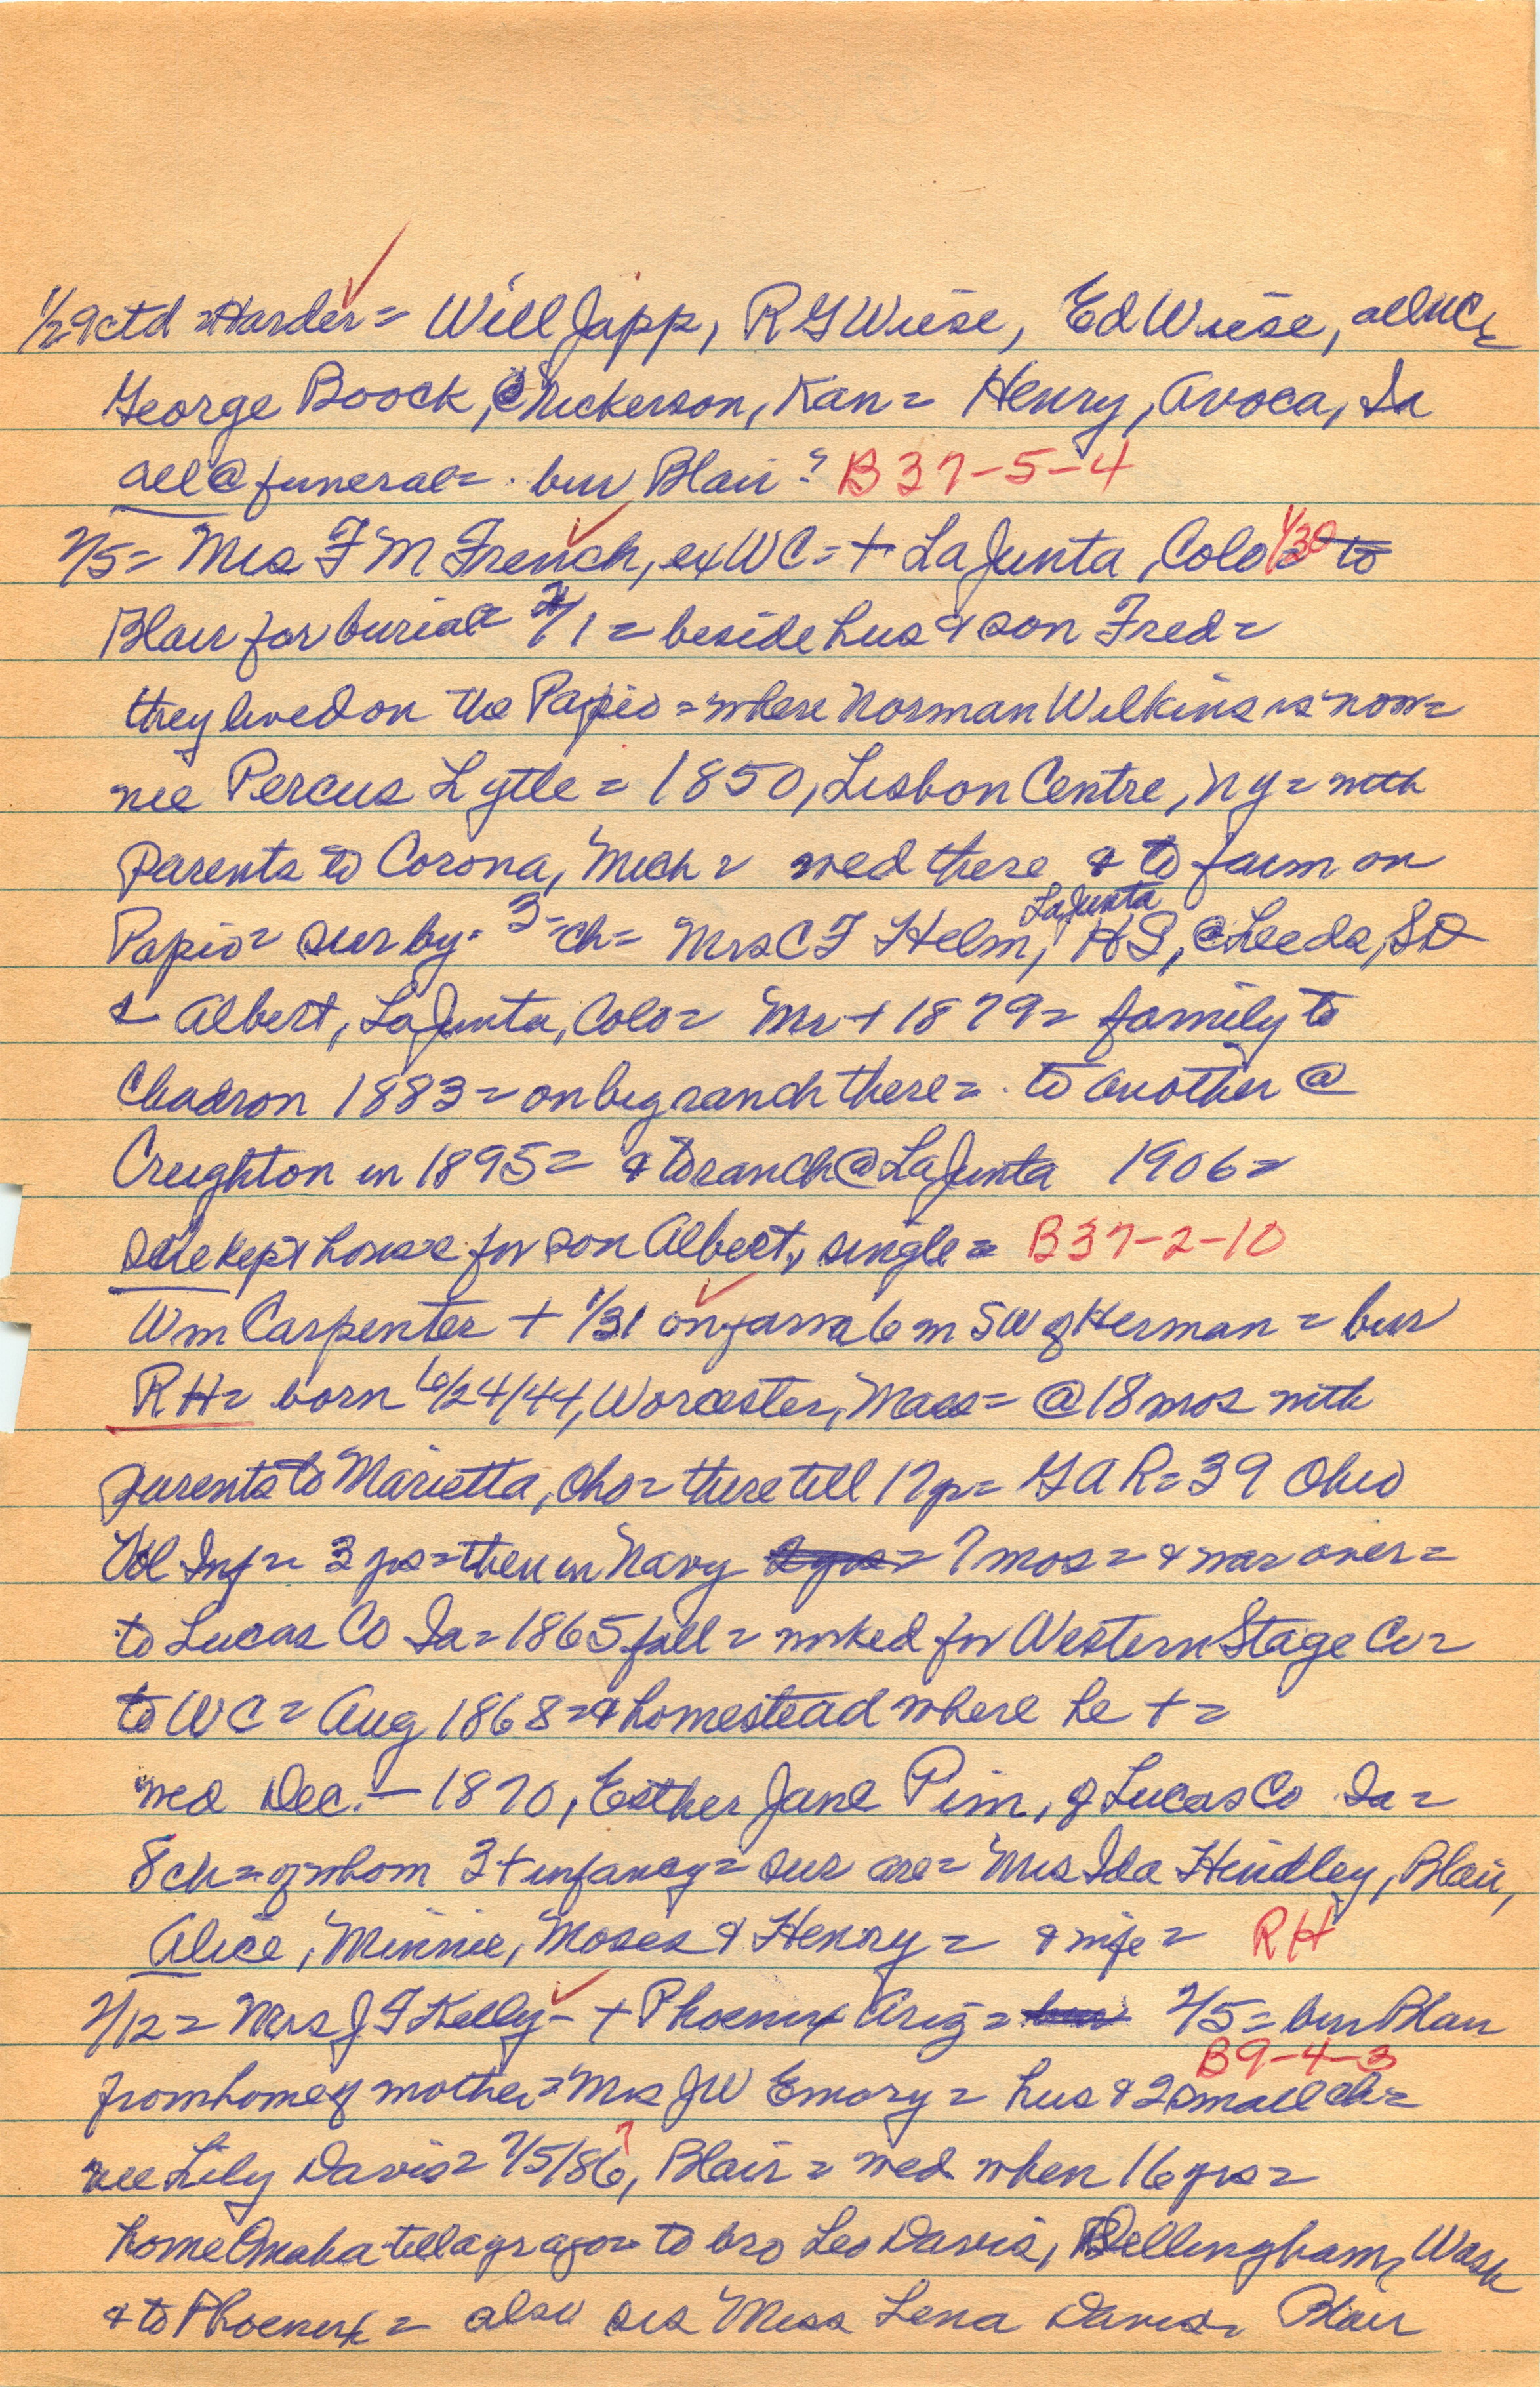 1/29 ctd = Harder = Will Japp, R G Wiese, Ed Wiese, all WC &
George Boock, @ Nickerson, Kan = Henry, Avoca, Ia
all @ funeral = bur Blair ? B37-5-4
2/5 = Mrs F M French, ex WC = + La Junta, Colo 1/30 = to
Blair for burial = 2/1 = beside hus & son Fred =
they lived on the Papio = where Norman Wilkins is now =
nee Percus Lytle = 1850, Lisbon Centre, NY = with
parents to Corona, Mich = wed there & to farm on
Papio = sur by = 3 = ch = Mrs C F Helm, La Junta, H S, @ Leeds, SD
& Albert, La Junta, Colo = Mr + 1879 = family to
Chadron 1883 = on big ranch there = to another @
Creighton in 1895 = & to ranch @ La Junta 1906 =
she kept house for son Albert, single = B37-2-10
Wm Carpenter + 1/31 on farm 6 m SW of Herman = bur
RH = born 6/24/44, Worcester, Mass = @ 18 mos with
parents to Marietta, Oho = there till 17 yr = GAR = 39 Ohio
Vol Inf = 3 yrs = then in Navy = 7 mos = & war over =
to Lucas Co Ia = 1865 fall = worked for Western Stage Co =
to WC = Aug 1868 = & homestead where he + =
wed Dec. - 1870, Esther Jane Pim, of Lucas Co Ia =
8 ch = of whom 3 + infancy = sur are = Mrs Ida Hindley, Blair,
Alice, Minnie, Moses & Henry = & wife = RH
2/12 = Mrs J F Kelly - + Phoenix Ariz = bur 2/5 = bur Blair
B9-4-3
from home of mother = Mrs JW Emory = hus & 2 small ch =
nee Lily Davis = 7/5/86 ?, Blair = wed when 16 yrs =
home Omaha till a yr ago = to bro Leo Davis, Bellingham, Wash
& to Phoenix = also sis Miss Lena Davis, Blair